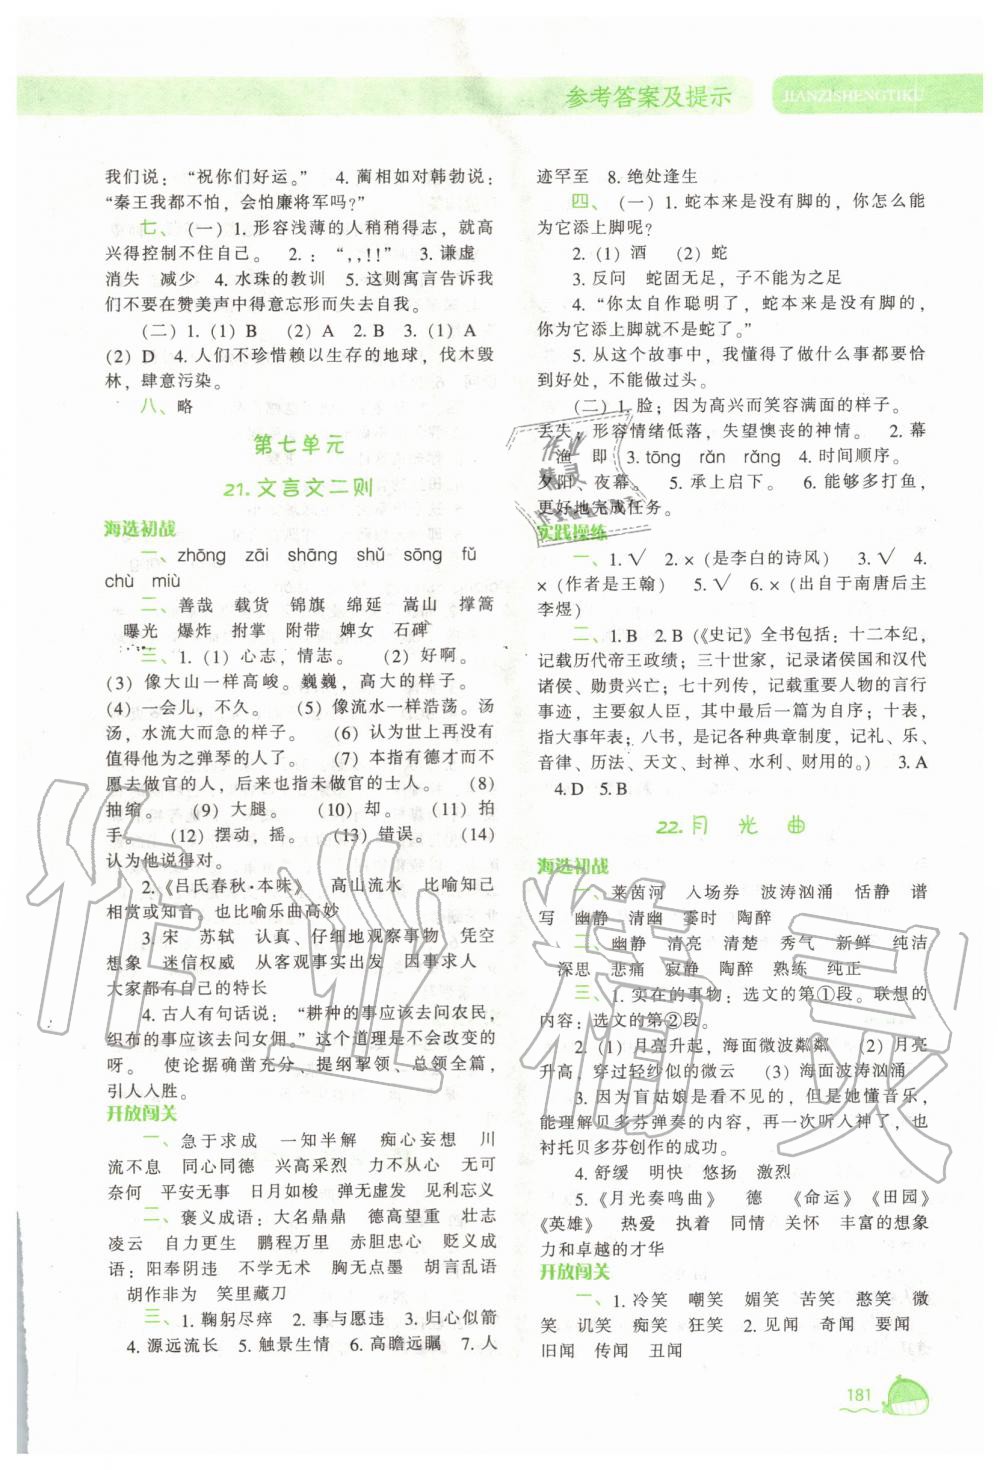 参考答案及提示
JIANZISHENGTIKU
我们说：“祝你们好运。”　4. 蔺相如对韩勃说：
“秦王我都不怕，会怕廉将军吗？”
七、（一）1. 形容浅薄的人稍稍得志，就高
兴得控制不住自己。　2. ：“，，！！”　3. 谦虚
消失　减少　4. 水珠的教训　5. 这则寓言告诉我
们不要在赞美声中得意忘形而失去自我。
（二）1.（1）B　（2）A　2. B　3.（1）A
（2）D　4. 人们不珍惜赖以生存的地球，伐木毁
林，肆意污染。
八、略
第七单元
21. 文言文二则
海选初战
一、zhōng　zāi　shāng　shǔ　sōng　fǔ
chù　miù
二、善哉　载货　锦旗　绵延　嵩山　撑篙
曝光　爆炸　拊掌　附带　婢女　石碑
三、1.（1）心志，情志。　（2）好啊。
（3）像大山一样高峻。巍巍，高大的样子。
（4）一会儿，不久。　（5）像流水一样浩荡。汤
汤，水流大而急的样子。　（6）认为世上再没有
值得他为之弹琴的人了。　（7）本指有德才而不
愿去做官的人，后来也指未做官的士人。　（8）
抽缩。　（9）大腿。　（10）却。　（11）拍
手。　（12）摆动，摇。　（13）错误。　（14）
认为他说得对。
2.《吕氏春秋·本味》　高山流水　比喻知己
相赏或知音，也比喻乐曲高妙
3. 宋　苏轼　认真、仔细地观察事物　凭空
想象　迷信权威　从客观事实出发　因事求人
大家都有自己的特长
4. 古人有句话说：“耕种的事应该去问农民，
织布的事应该去问女佣。”这个道理是不会改变的
呀。　使论据确凿充分、提纲挈领、总领全篇，
引人入胜。
开放闯关
一、急于求成　一知半解　痴心妄想　川
流不息　同心同德　兴高采烈　力不从心　无可
奈何　平安无事　日月如梭　弹无虚发　见利忘义
二、褒义成语：大名鼎鼎　德高望重　壮志
凌云　自力更生　鹏程万里　赤胆忠心　贬义成
语：阳奉阴违　不学无术　胸无点墨　胡言乱语
胡作非为　笑里藏刀
三、1. 鞠躬尽瘁　2. 事与愿违　3. 归心似箭
4. 源远流长　5. 触景生情　6. 高瞻远瞩　7. 人
迹罕至　8. 绝处逢生
四、（一）1. 蛇本来是没有脚的，你怎么能
为它添上脚呢？
2.（1）酒　（2）蛇
3. 反问　蛇固无足，子不能为之足
4. “你太自作聪明了，蛇本来是没有脚的，
你为它添上脚就不是蛇了。”
5. 从这个故事中，我懂得了做什么事都要恰
到好处，不能做过头。
（二）1. 脸；因为高兴而笑容满面的样子。
丢失；形容情绪低落、失望懊丧的神情。　2. 幕
渔　即　3. tōng　rǎn　rǎng　4. 时间顺序。
夕阳、夜幕。　5. 承上启下。　6. 能够多打鱼，
更好地完成任务。
实践操练
一、1. √　2. ×（是李白的诗风）　3. √　4.
×（作者是王翰）　5. √　6. ×（出自于南唐后主
李煜）
二、1. B　2. B（《史记》全书包括：十二本纪，
记载历代帝王政绩；三十世家，记录诸侯国和汉代
诸侯、勋贵兴亡；七十列传，记载重要人物的言行
事迹，主要叙人臣，其中最后一篇为自序；十表，
指大事年表；八书，是记各种典章制度，记礼、乐、
音律、历法、天文、封禅、水利、财用的。）　3. A
4. D　5. B
22. 月　光　曲
海选初战
一、莱茵河　入场券　波涛汹涌　恬静　谱
写　幽静　清幽　霎时　陶醉
二、幽静　清亮　清楚　秀气　新鲜　纯洁
深思　悲痛　寂静　陶醉　熟练　纯正
三、1. 实在的事物：选文的第①段。联想的
内容：选文的第②段。
2.（1）月亮升起，海面微波粼粼　（2）月亮
升高，穿过轻纱似的微云　（3）海面波涛汹涌
3. 因为盲姑娘是看不见的，但是她懂音乐，
能理解贝多芬弹奏的内容，再一次听入神了，也
衬托贝多芬创作的成功。
4. 舒缓　明快　悠扬　激烈
5.《月光奏鸣曲》　德　《命运》《田园》
《英雄》　热爱　执着　同情　关怀　丰富的想象
力和卓越的才华
开放闯关
一、1. 冷笑　嘲笑　媚笑　苦笑　憨笑　微
笑　讥笑　痴笑　狂笑　2. 见闻　奇闻　要闻
旧闻　传闻　丑闻
181
作业精灵